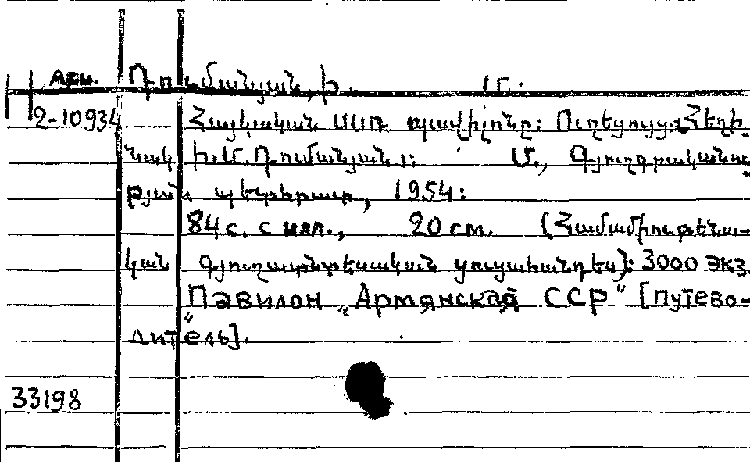 Арм. Ղումանյան, Խ. Մ.
2-10934 Հայկական ՍՍՌ պավիլիոնը: Ուղեցույց: Հեղի-
նակ՝ Խ. Մ. Ղումանյան: Մ., Գյուղգրականու-
թյան պետհրատ, 1954:
84 с. с илл., 20 см. (Համամիութենա-
կան գյուղատնտեսական ցուցահանդես): 3000 экз.
Павилон „Армянская ССР“ [Путево-
дитель].
33198